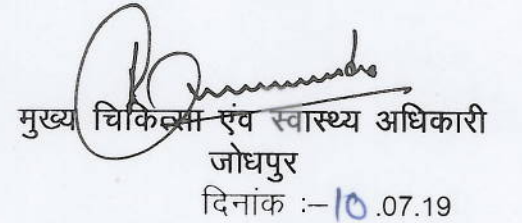 मुख्य चिकित्सा एंव स्वास्थ्य अधिकारी
जोधपुर
दिनांक :– 10 .07.19